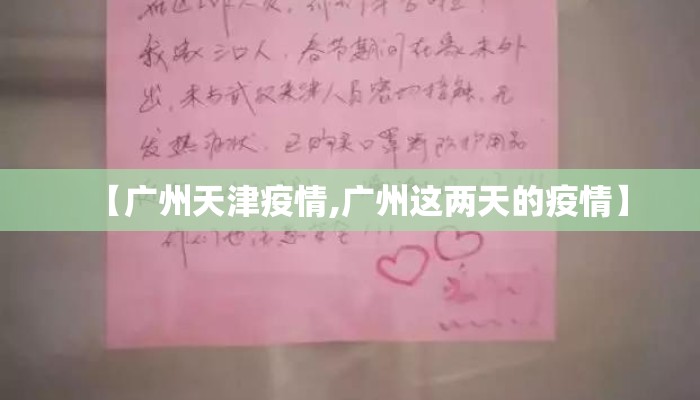 我家三口人，春节期间在家未外
出，未与武汉来津人员密切接触，无
发热症状，已购买口罩等防护用品
【广州天津疫情,广州这两天的疫情】
你们也注意安全！！！